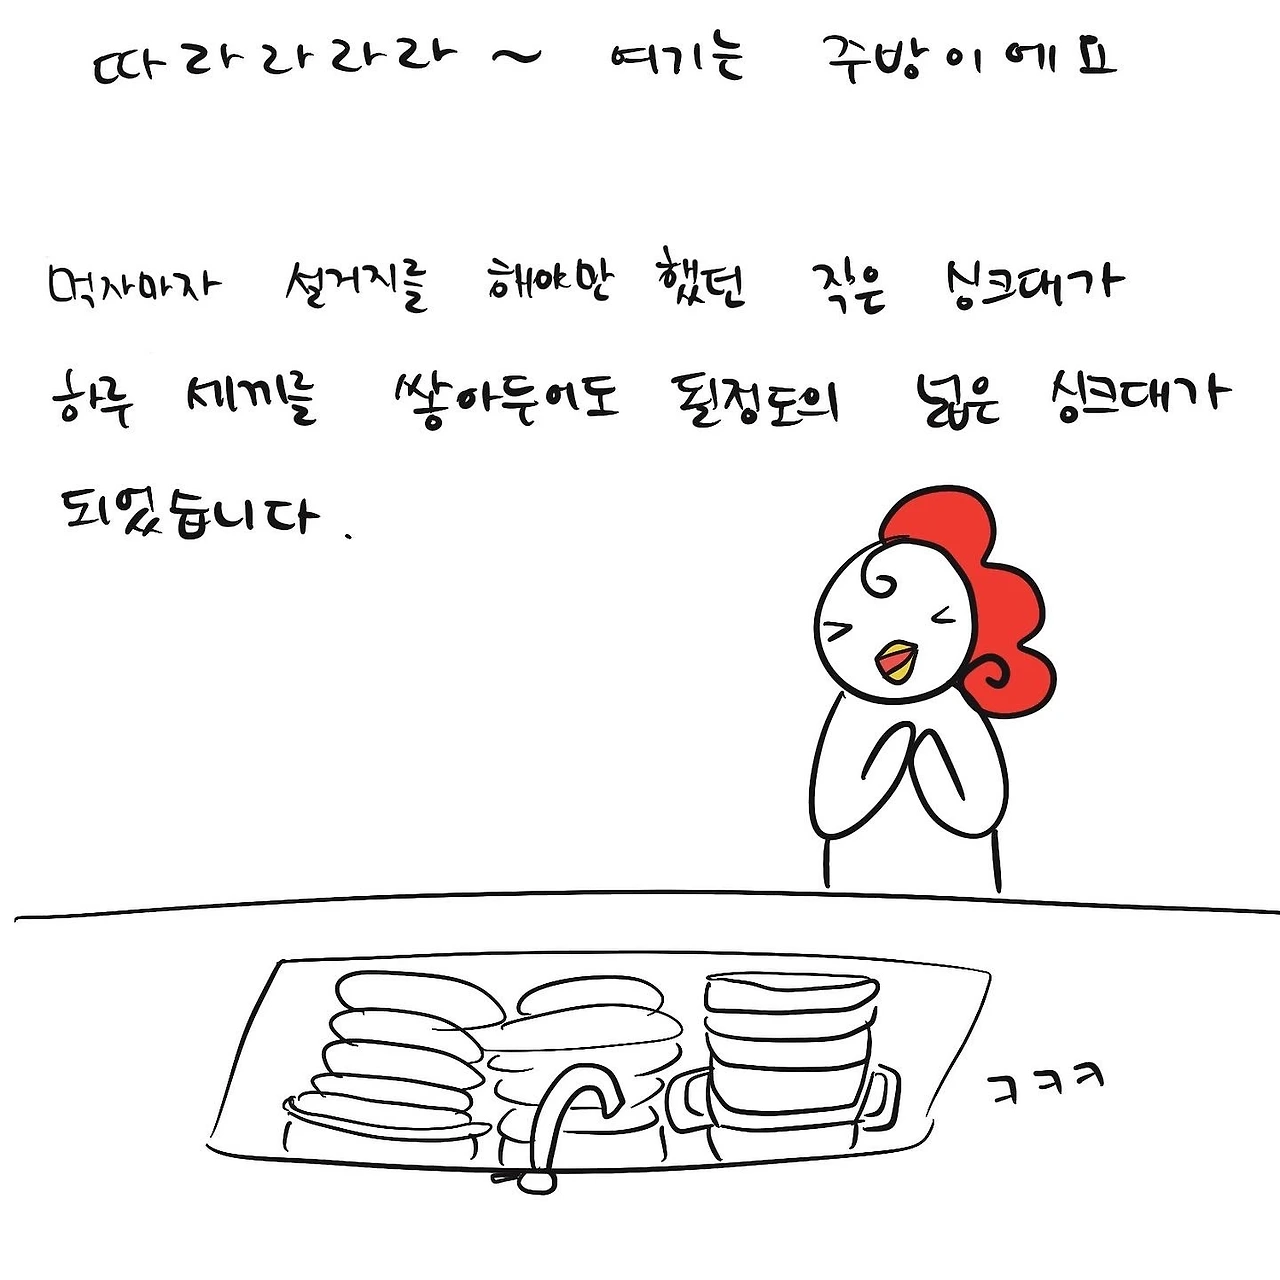 따라라라라~ 여기는 주방이에요
먹자마자 설거지를 해야만 했던 작은 싱크대가
하루 세끼를 쌓아두어도 될정도의 넓은 싱크대가
되었습니다.
ㅋㅋㅋ